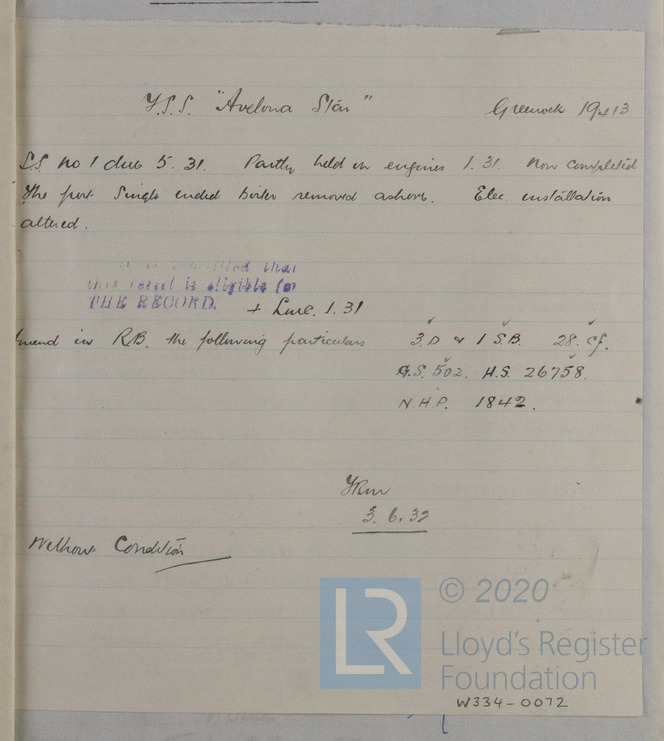 T.S.S. "Avelona Star" Greenock 19413
S.S. No 1 due 5.31. Partly held on engines 1.31. Now completed
The port Single ended boiler removed ashore. Elec. installation
altered.
that
this vessel is eligible for
THE RECORD. + LMC. 1.31
Amend in R.B. the following particulars 3.D & 1 S.B. 28. cf.
G.S. 502. H.S. 26758.
N.H.P. 1842.
3.6.32
Without Condition
LR
© 2020
Lloyd's Register
Foundation
W334-0072